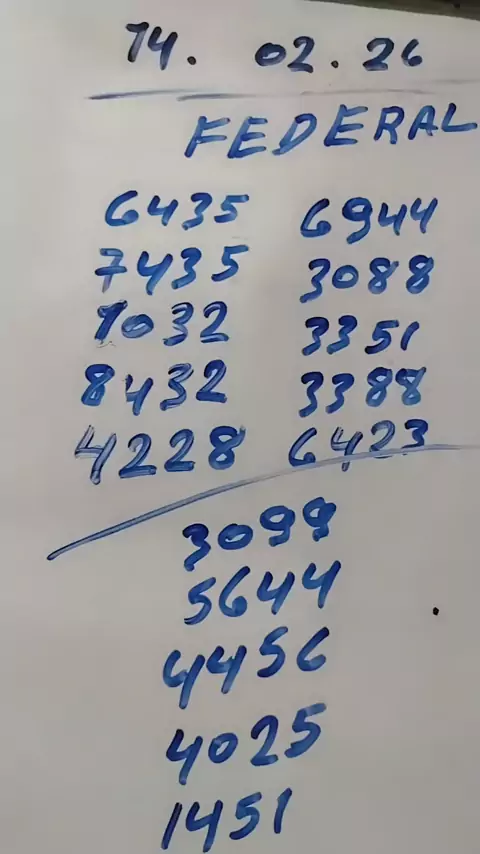 14. 02.26
FEDERAL
6435 6944
7435 3088
1032 3351
8432 3388
4228 6423
3099
5644
4456
4025
1451